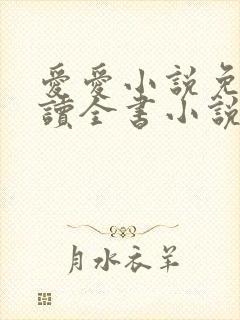 愛愛小說免
讀全書小說
月水衣羊